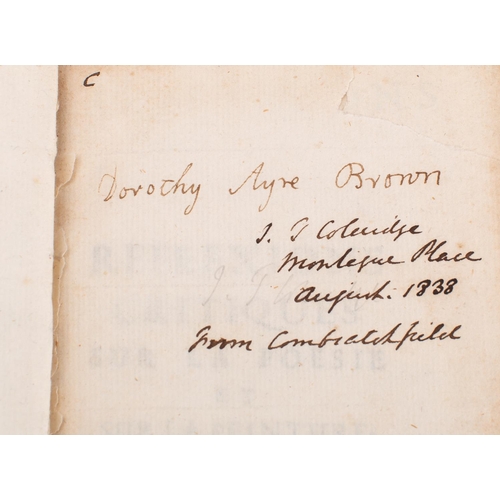 C
Dorothy Ayre Brown
J. T Coleridge
Montague Place
August. 1838
from Combsatchfield